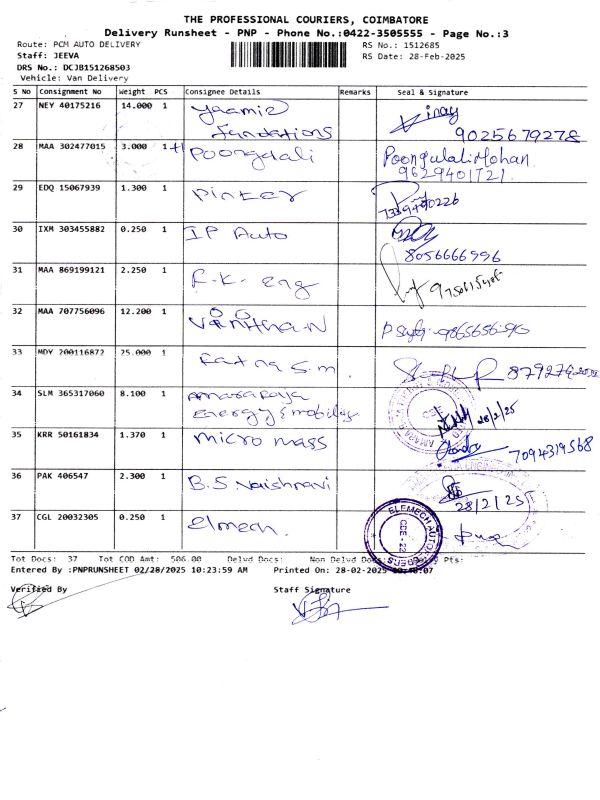 THE PROFESSIONAL COURIERS, COIMBATORE
Delivery Runsheet - PNP - Phone No.:0422-3505555 - Page No.:3
Route: PCM AUTO DELIVERY
RS No.: 1512685
Staff: JEEVA
RS Date: 28-Feb-2025
DRS No.: DCJB151268503
Vehicle: Van Delivery
S No Consignment No Weight PCS Consignee Details Remarks Seal & Signature
27 NEY 40175216 14.000 1 Yaamiz Vinay
Fundations 9025679278
28 MAA 302477015 3.000 1 Poongdali Poongulali Mohan
9629401721
29 EDQ 15067939 1.300 1 Pinter
30 IXM 303455882 0.250 1 IP Auto
8056666996
31 MAA 869199121 2.250 1 R.K. Eng
32 MAA 707756096 12.200 1
33 MDY 200116872 25.000 1 S.m.
34 SLM 365317060 8.100 1 Amararaja
Energy & mobility 28/2/25
35 KRR 50161834 1.370 1 micro mass
7094319568
36 PAK 406547 2.300 1 B.S Vaishnavi
28/2/25
37 CGL 20032305 0.250 1 Elmech.
ELEMECH
CBE - 22
Tot Docs: 37 Tot COD Amt: 506.00 Delvd Docs: Non Delvd Docs: Pts:
Entered By :PNPRUNSHEET 02/28/2025 10:23:59 AM Printed On: 28-02-2025
Verified By Staff Signature